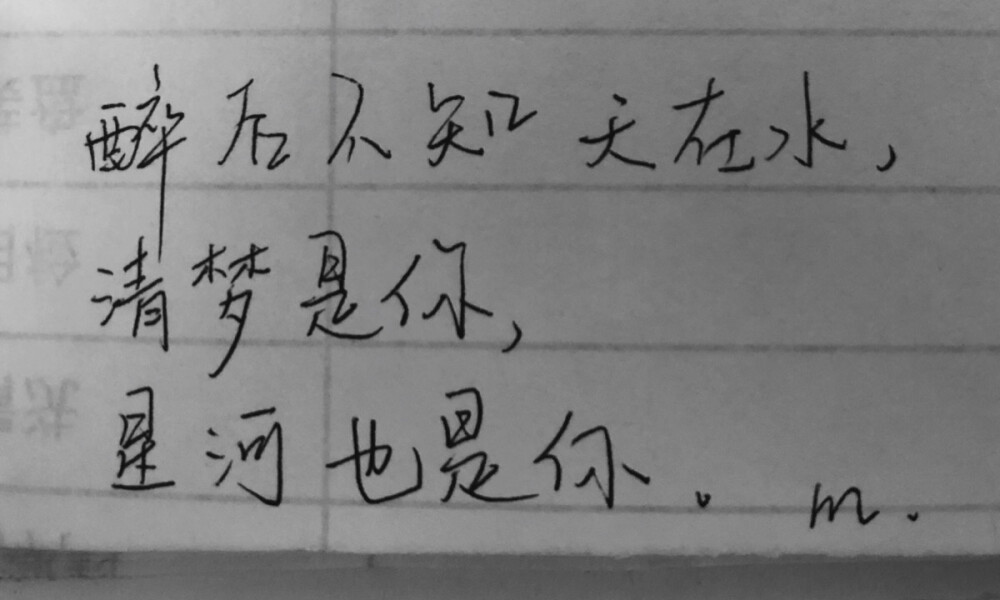 醉后不知天在水，
清梦是你，
星河也是你. m.